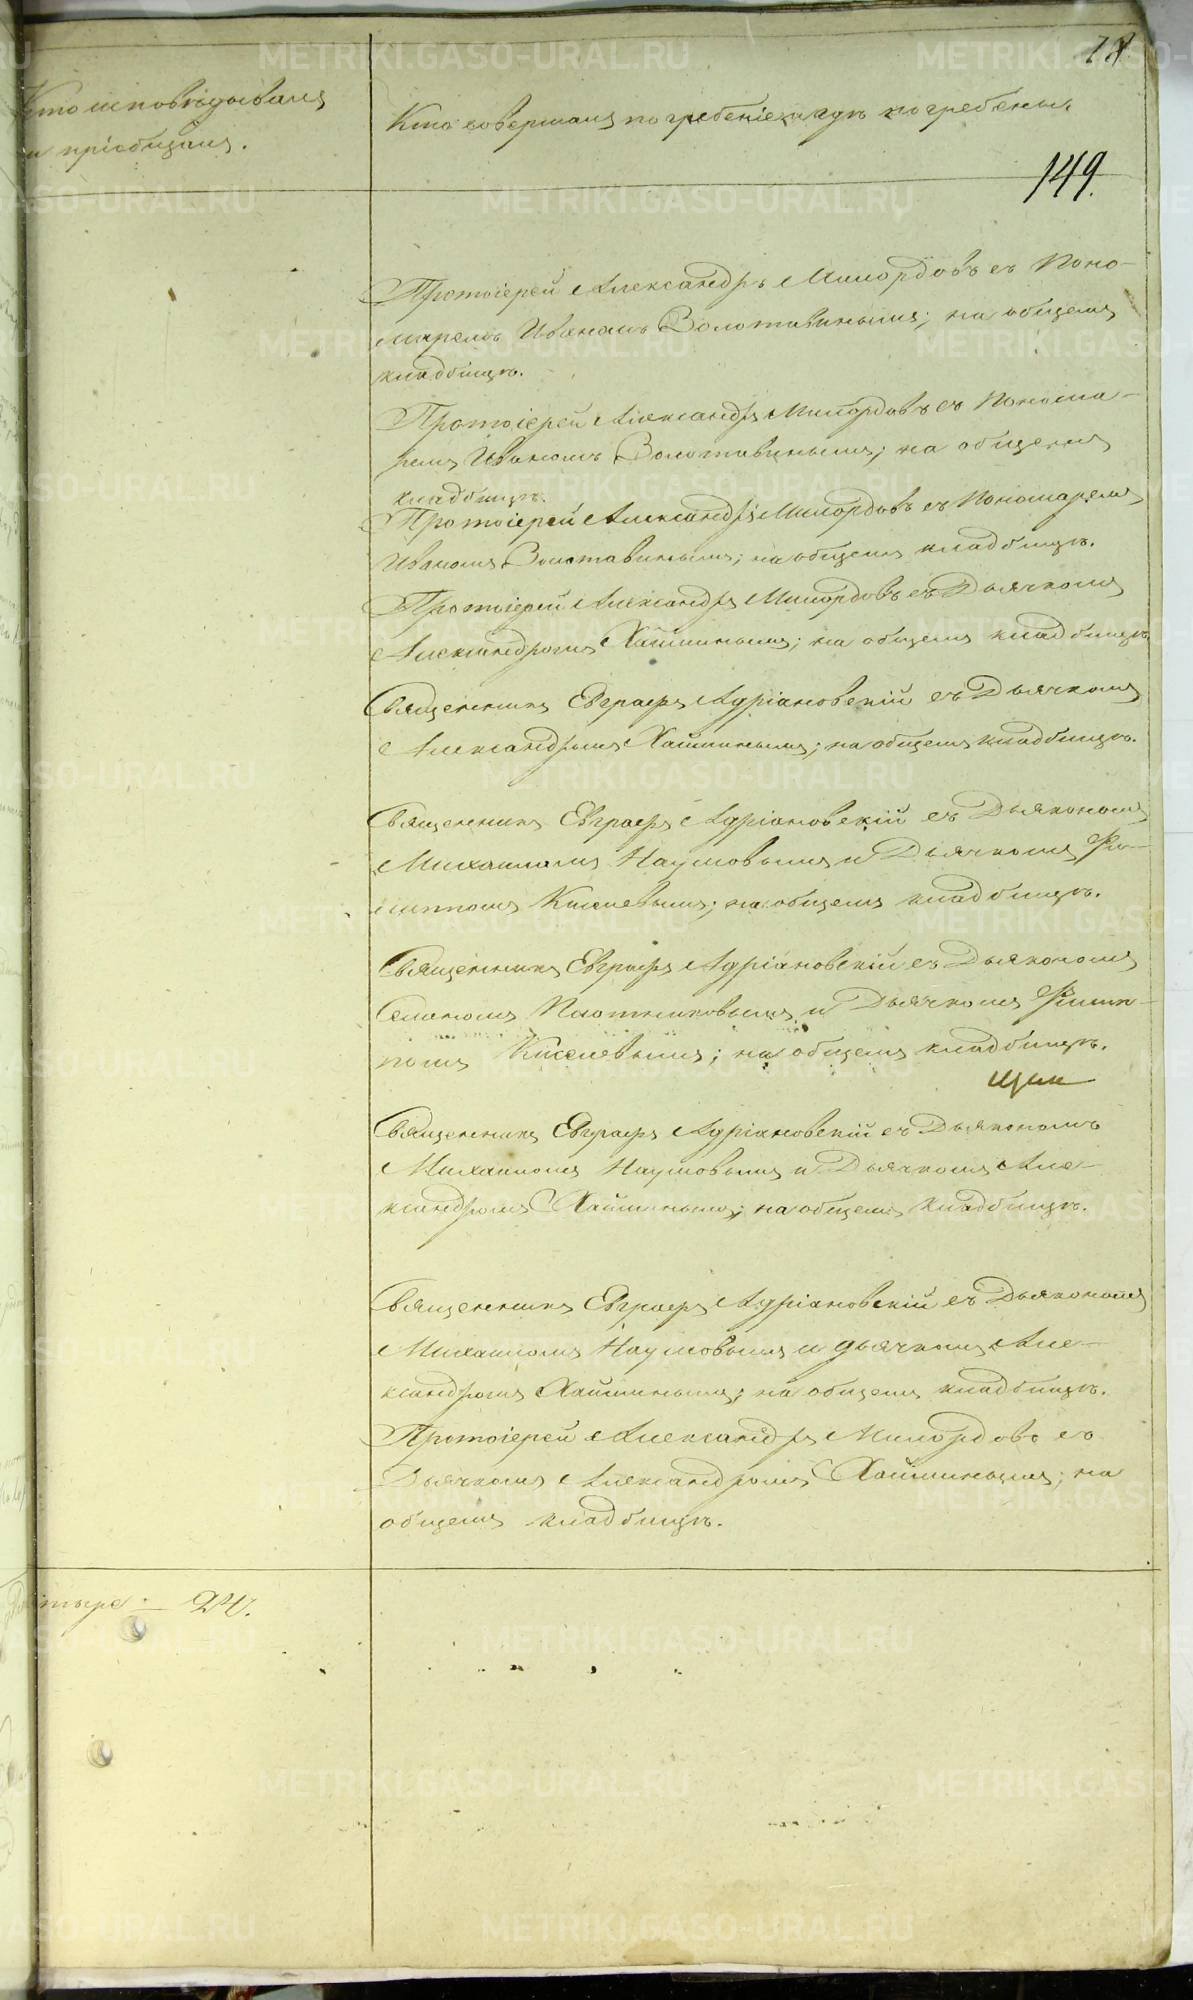 Кто исповѣдывалъ
и пріобщалъ.
Кто совершалъ погребеніе и гдѣ погребены.
149.
Протоіерей Александръ Милордовъ съ Поно-
маремъ Иваномъ Золотавинымъ; на общемъ
кладбищѣ.
Протоіерей Александръ Милордовъ съ Понома-
ремъ Иваномъ Золотавинымъ; на общемъ
кладбищѣ.
Протоіерей Александръ Милордовъ съ Пономаремъ
Иваномъ Золотавинымъ; на общемъ кладбищѣ.
Протоіерей Александръ Милордовъ съ Дьячкомъ
Александромъ Хаминымъ; на общемъ кладбищѣ
Священникъ Евграфъ Адріановскій съ Дьячкомъ
Александромъ Хаминымъ; на общемъ кладбищѣ.
Священникъ Евграфъ Адріановскій съ Дьякономъ
Михаиломъ Наумовымъ и Дьячкомъ Фи-
липпомъ Киселевымъ; на общемъ кладбищѣ.
Священникъ Евграфъ Адріановскій съ Дьякономъ
Симономъ Плотниковымъ и Дьячкомъ Филип-
помъ Киселевымъ; на общемъ кладбищѣ.
Священникъ Евграфъ Адріановскій съ Дьякономъ
Михаиломъ Наумовымъ и Дьячкомъ Але-
ксандромъ Хаминымъ; на общемъ кладбищѣ.
Священникъ Евграфъ Адріановскій съ Дьякономъ
Михаиломъ Наумовымъ и дьячкомъ Але-
ксандромъ Хаминымъ; на общемъ кладбищѣ.
Протоіерей Александръ Милордовъ съ
Дьячкомъ Александромъ Хаминымъ; на
общемъ кладбищѣ.
тыре — 24.
METRIKI.GASO-URAL.RU